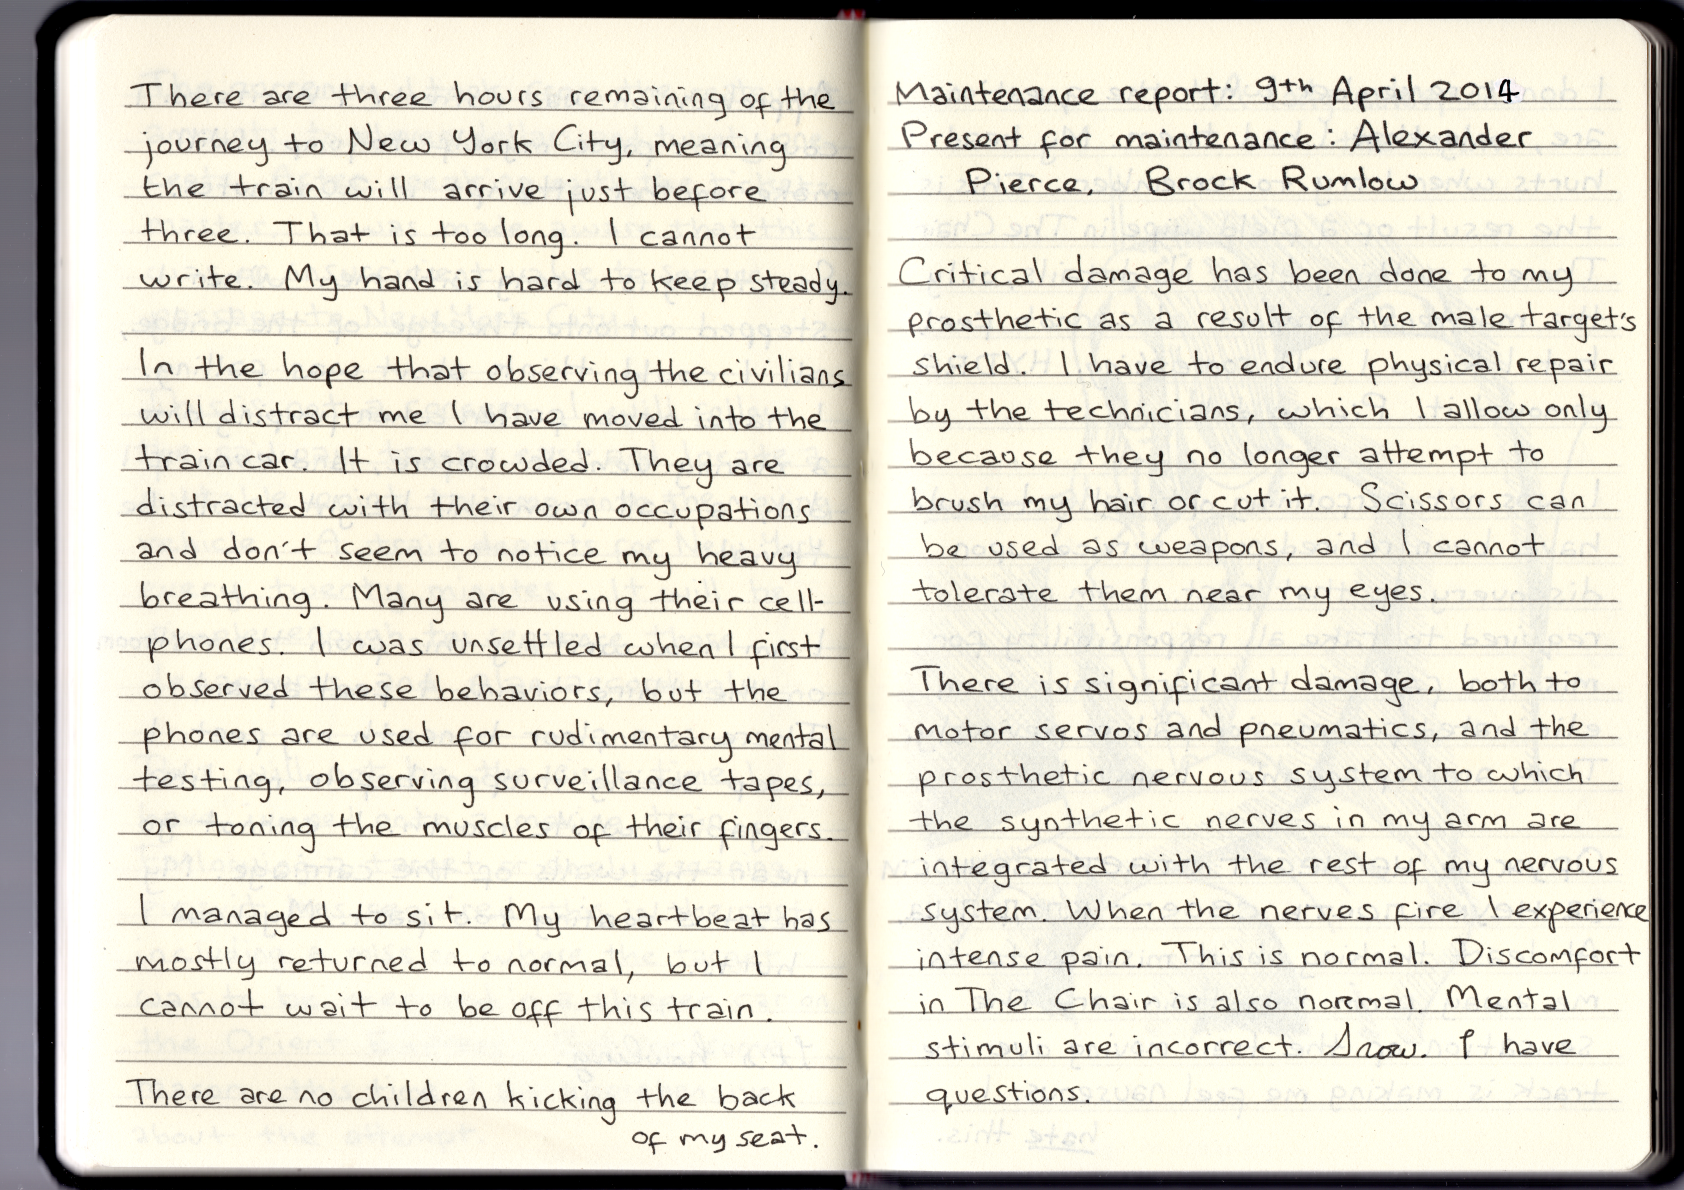 There are three hours remaining of the
journey to New York City, meaning
the train will arrive just before
three. That is too long. I cannot
write. My hand is hard to keep steady.
In the hope that observing the civilians
will distract me I have moved into the
train car. It is crowded. They are
distracted with their own occupations
and don't seem to notice my heavy
breathing. Many are using their cell-
phones. I was unsettled when I first
observed these behaviors, but the
phones are used for rudimentary mental
testing, observing surveillance tapes,
or toning the muscles of their fingers.
I managed to sit. My heartbeat has
mostly returned to normal, but I
cannot wait to be off this train.
There are no children kicking the back
of my seat.
Maintenance report: 9th April 2014
Present for maintenance: Alexander
Pierce, Brock Rumlow
Critical damage has been done to my
prosthetic as a result of the male target's
shield. I have to endure physical repair
by the technicians, which I allow only
because they no longer attempt to
brush my hair or cut it. Scissors can
be used as weapons, and I cannot
tolerate them near my eyes.
There is significant damage, both to
motor servos and pneumatics, and the
prosthetic nervous system to which
the synthetic nerves in my arm are
integrated with the rest of my nervous
system. When the nerves fire I experience
intense pain. This is normal. Discomfort
in The Chair is also normal. Mental
stimuli are incorrect. Snow. I have
questions.